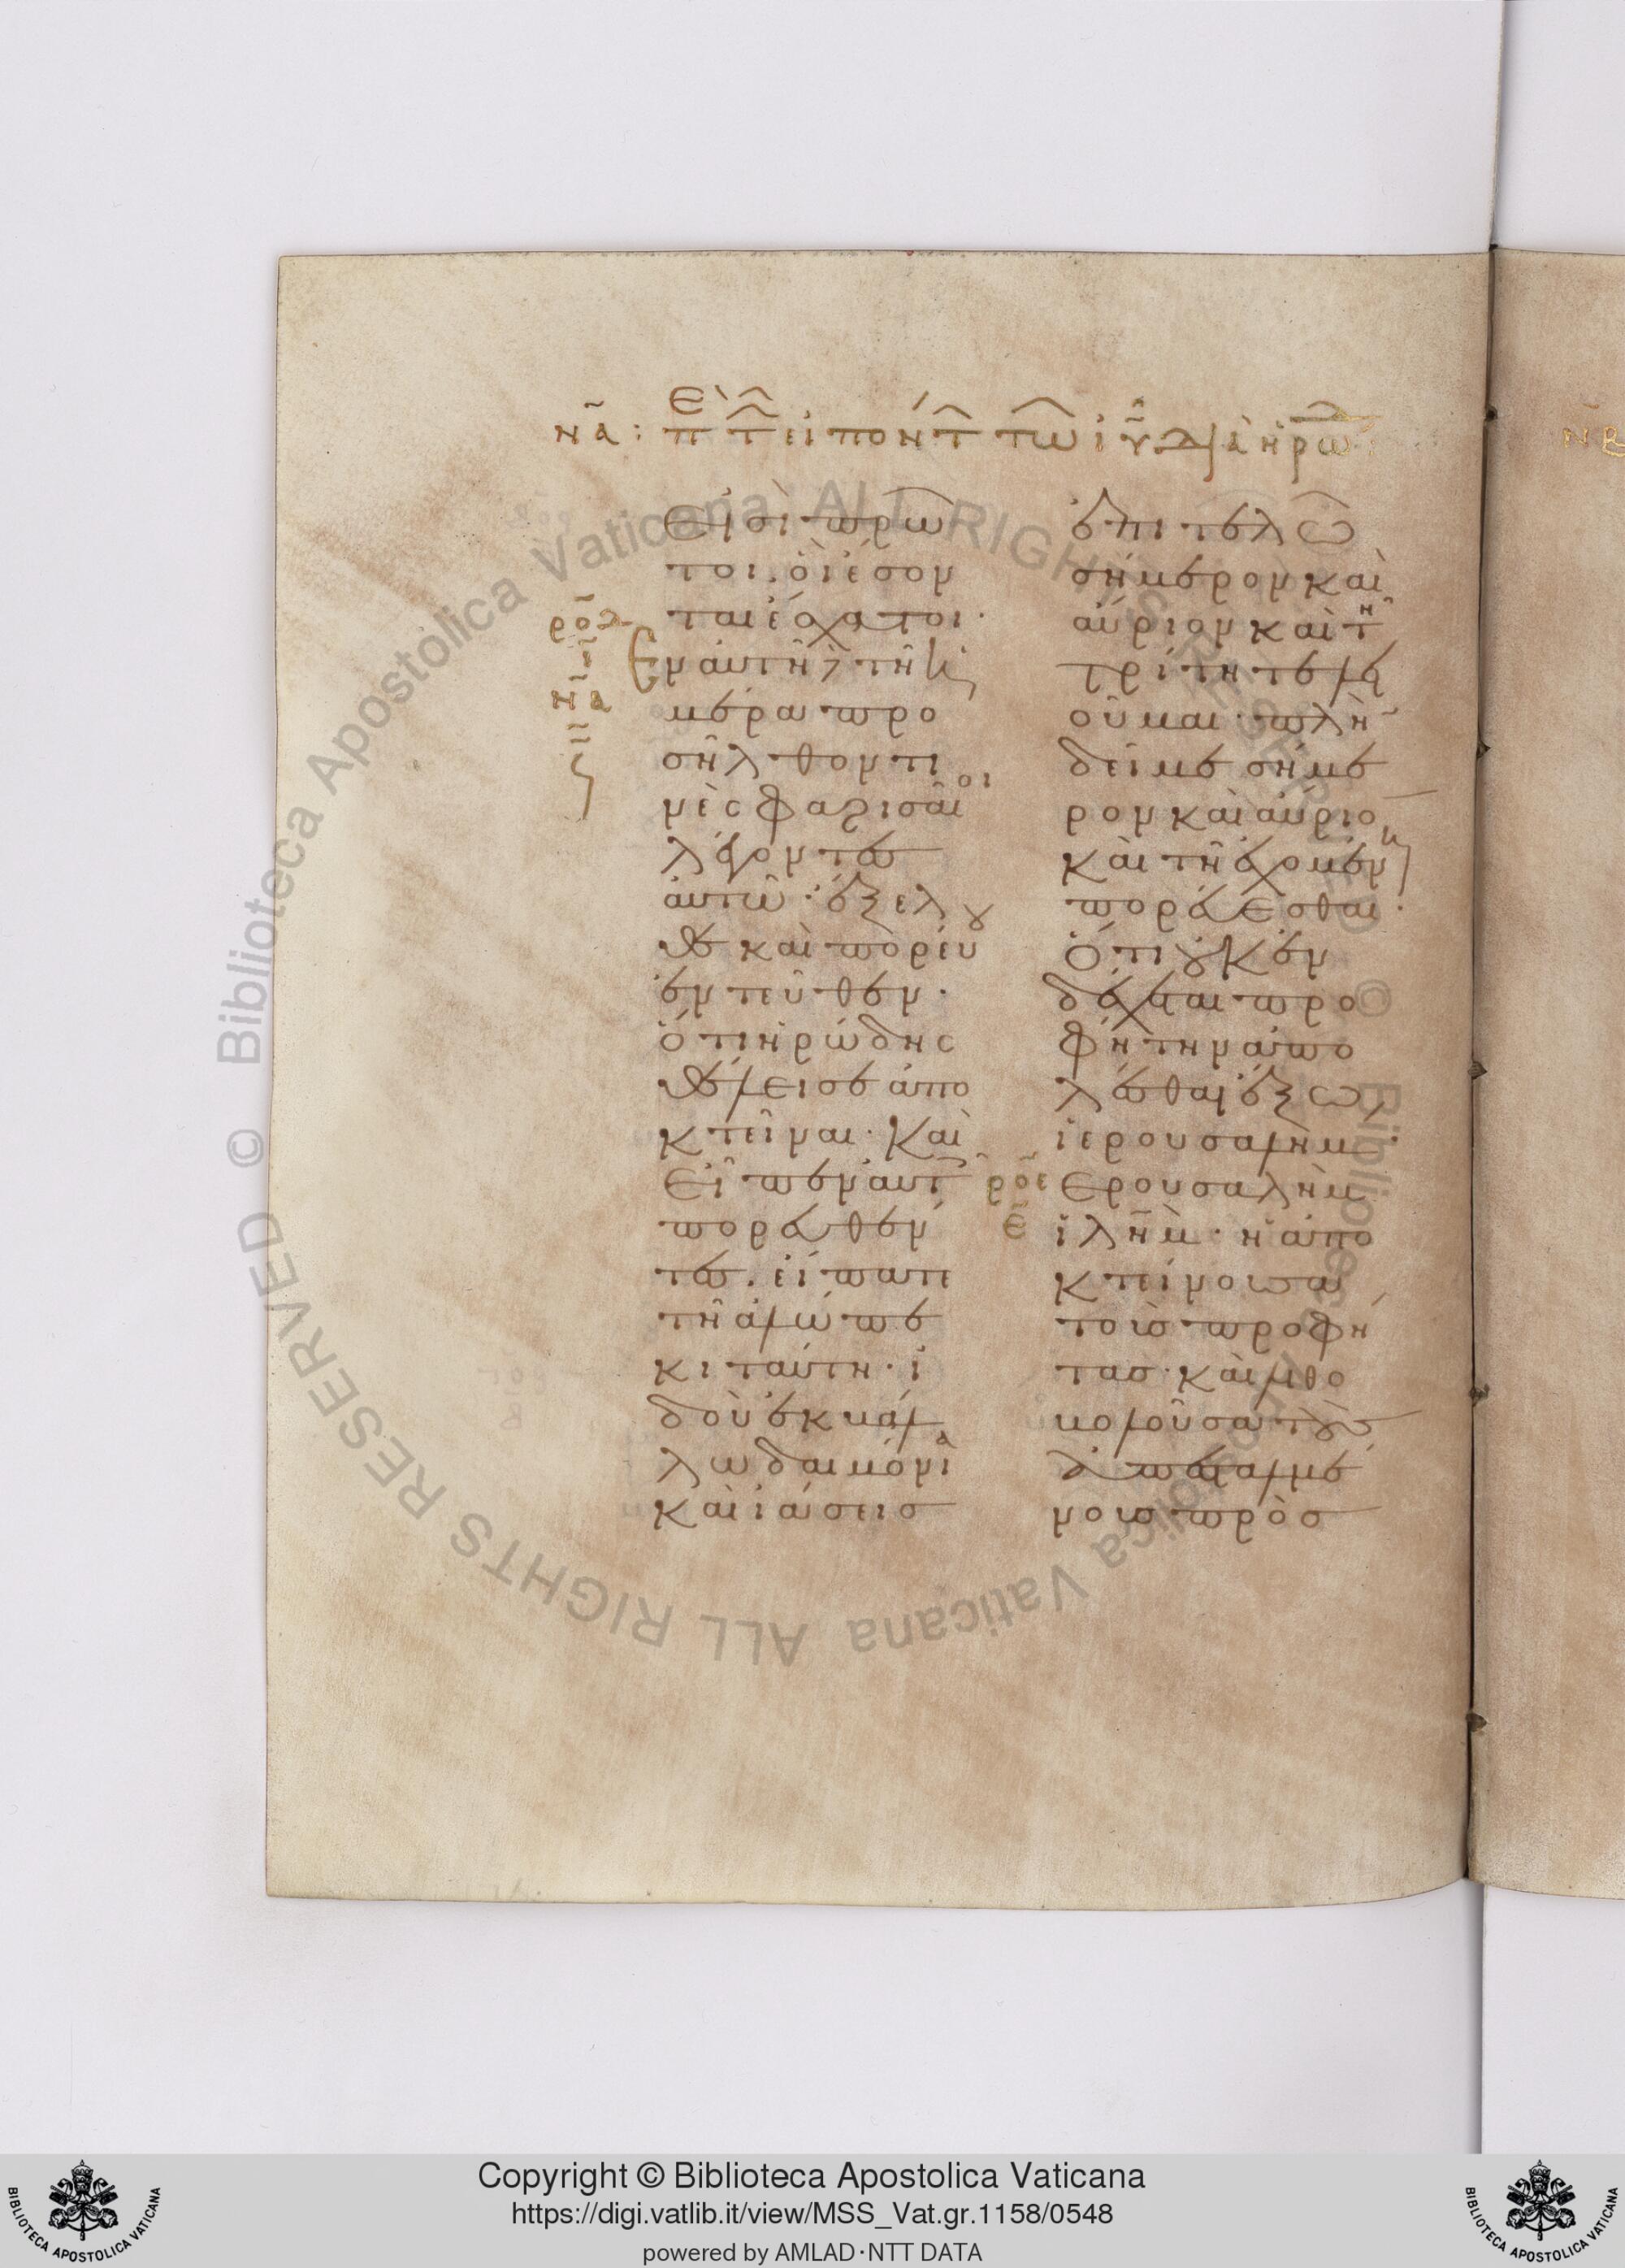 να: Περὶ τῶν εἰπόντων τῷ ἰυ διὰ ἡρώδ
εἰσὶ πρῶ
τοι· οἱ ἔσον
ται ἔσχατοι·
ροδ
ι
να
Ἐν αὐτῆ τῆ ἡ
μέρα προ
σῆλθον τι
νὲς φαρισαῖοι
λέγοντες
αὐτῶ· ἔξελ
θε καὶ πορεύου
ἐντεῦθεν·
ὅτι ἡρώδης
θέλει σε ἀπο
κτεῖναι· καὶ
εἶπεν αὐτοῖς
πορευθέν
τες· εἴπατε
τῆ ἀλώπε
κι ταύτη· ἰ
δοὺ ἐκβάλ
λω δαιμόνια
καὶ ἰάσεις
ἐπιτελῶ
σήμερον καὶ
αὔριον καὶ τῆ
τρίτη τελει
οῦμαι· πλὴν
δεῖ με σήμε
ρον καὶ αὔριον
καὶ τῆ ἐχομένη
πορεύεσθαι·
ὅτι οὐκ ἐν
δέχεται προ
φήτην ἀπο
λέσθαι ἔξω
ιερουσαλὴμ·
ροε
ε
Ιερουσαλὴμ
ιλημ· ἡ ἀπο
κτείνουσα
τοὺς προφή
τας· καὶ λιθο
βολοῦσα τοὺς
ἀπεσταλμέ
νους πρὸς
νβ
Copyright © Biblioteca Apostolica Vaticana
https://digi.vatlib.it/view/MSS_Vat.gr.1158/0548
powered by AMLAD·NTT DATA
BIBLIOTECA APOSTOLICA VATICANA
BIBLIOTECA APOSTOLICA VATICANA
© Biblioteca Apostolica Vaticana ALL RIGHTS RESERVED © Biblioteca Apostolica Vaticana ALL RIGHTS RESERVED